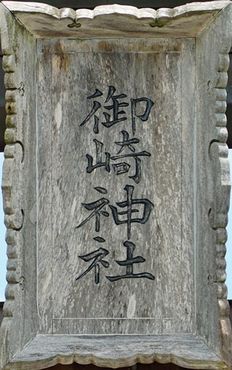 御崎神社